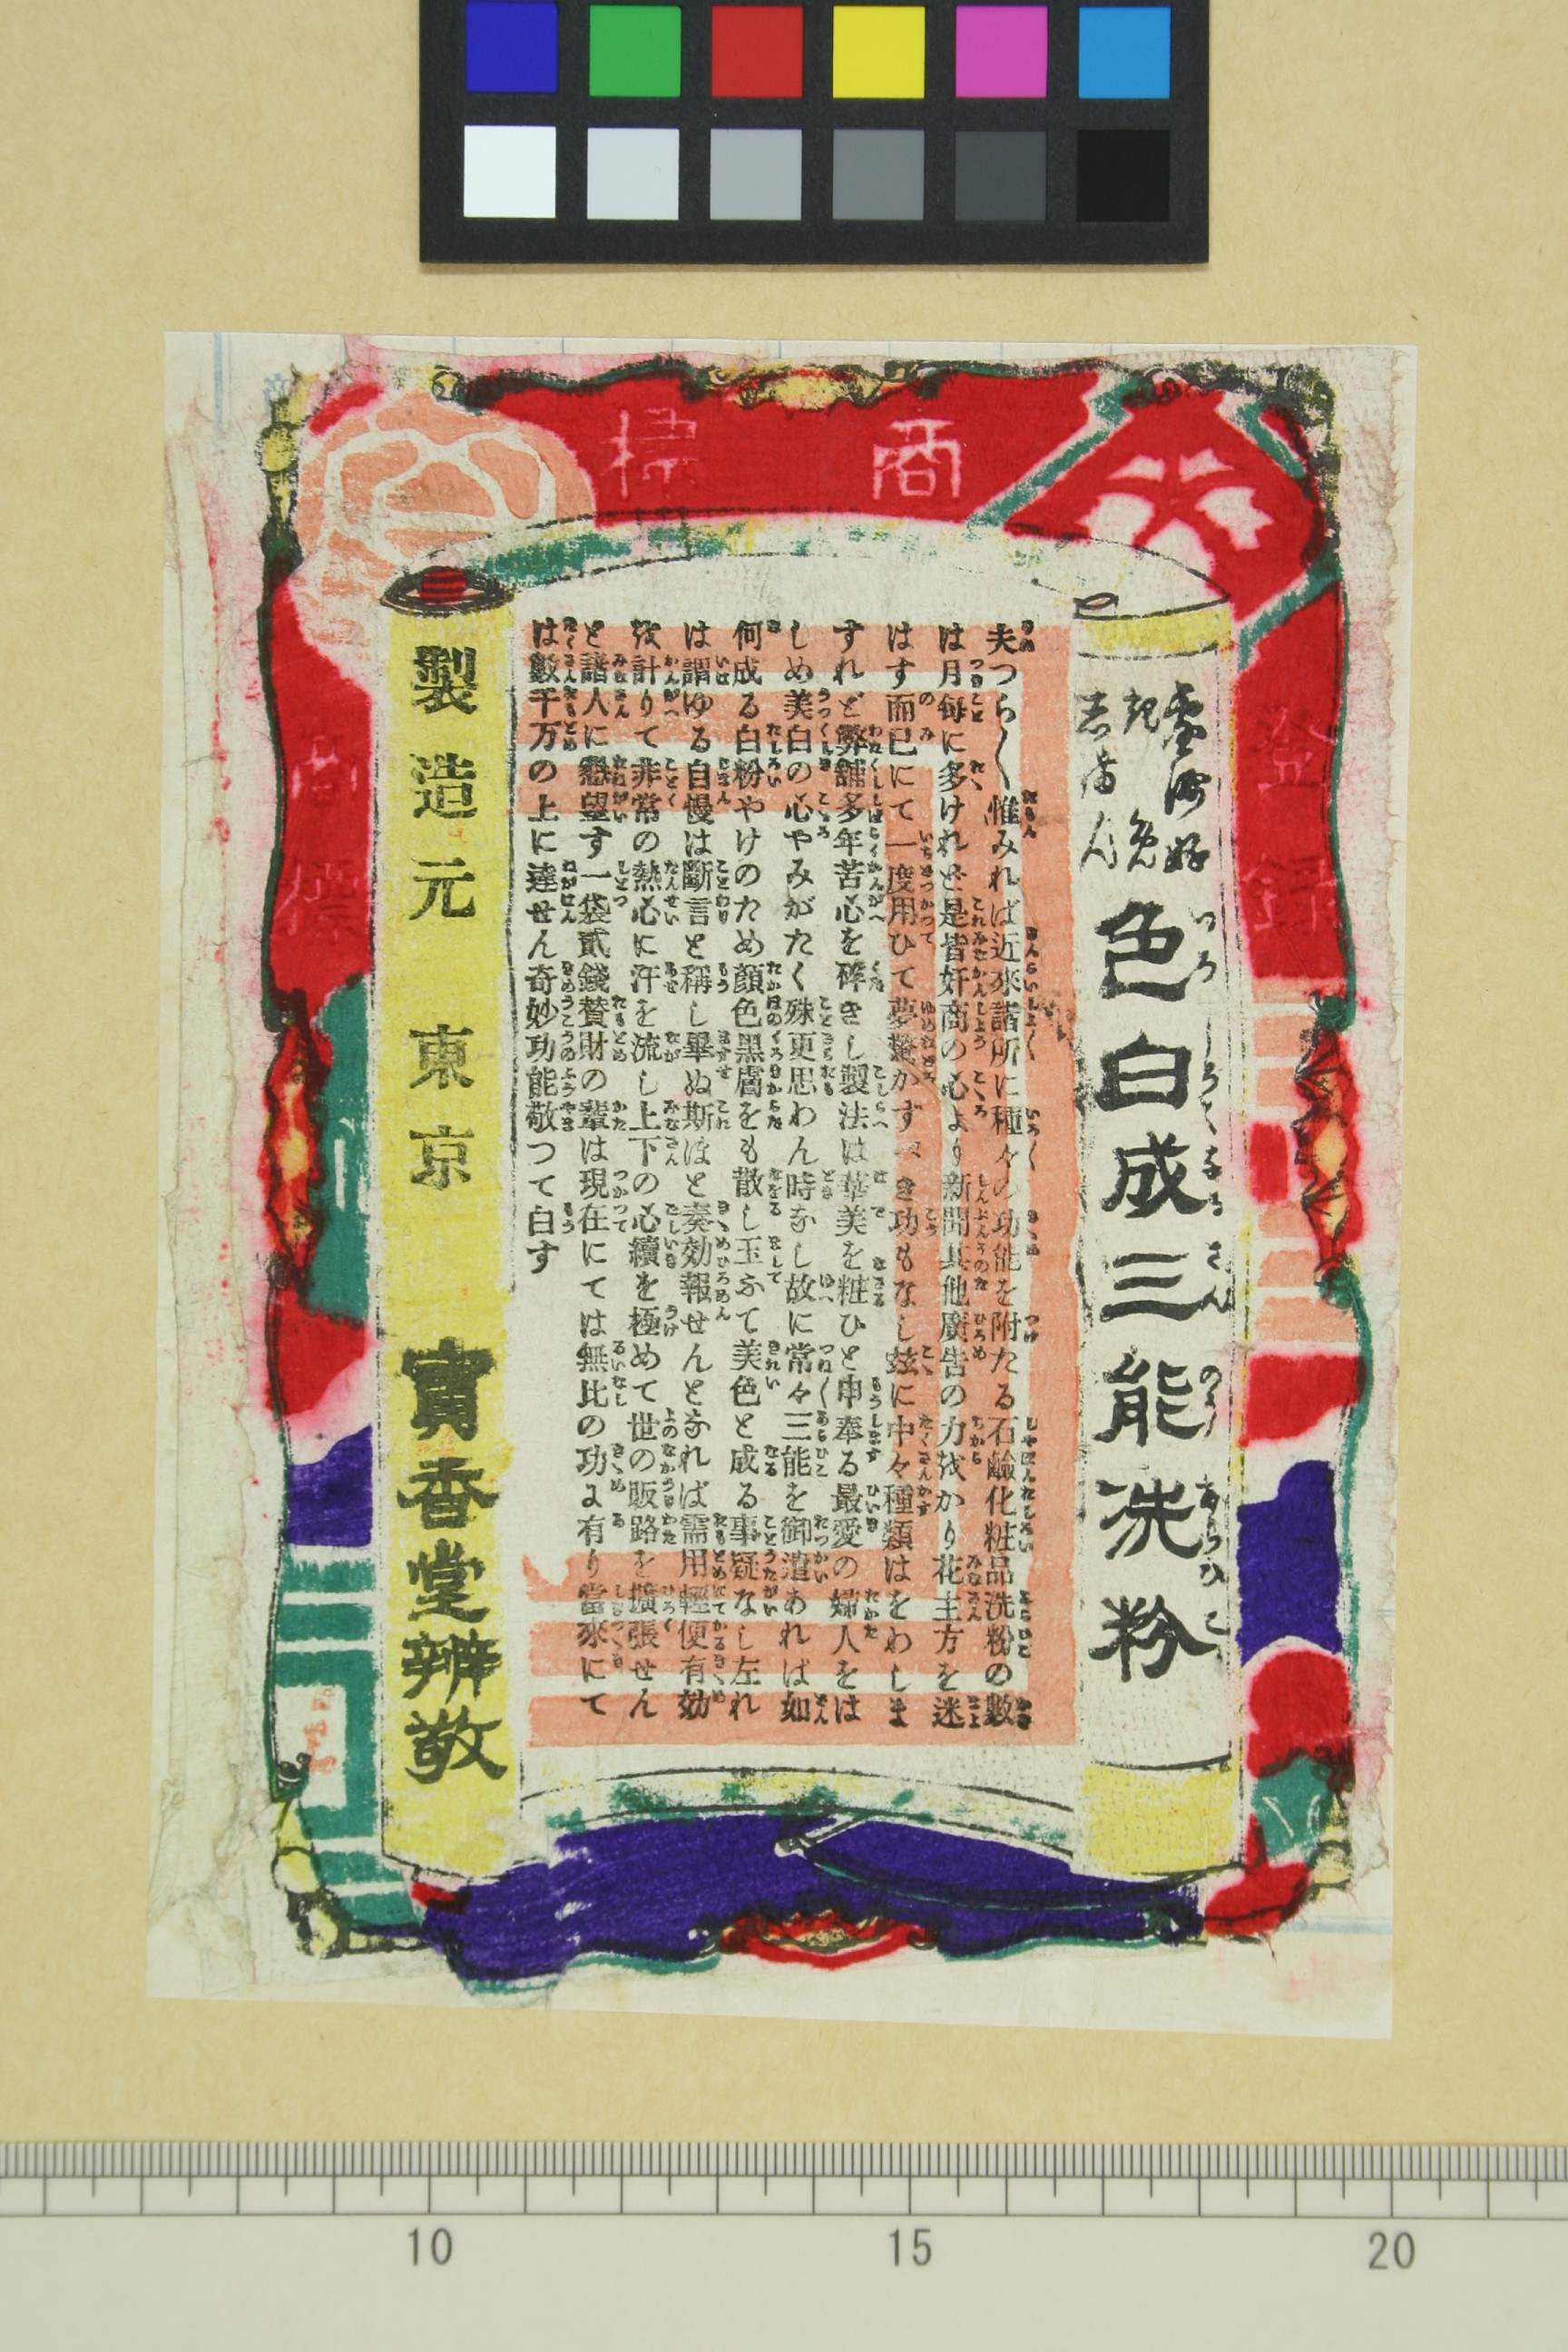 商標
登録
商標
色白成三能洗粉
いろしろくなるさんのうあらひこ
夫つら〱惟みれば近來諸所に種々の功能を附たる石鹸化粧品洗粉の數
は月毎に多けれど是皆奸商の心より新聞其他廣告の力を以かり花主方を迷
はす而已にて一度用ひて夢驚かすべき功もなし玆に中々種類はをわしま
すれど弊舗多年苦心を碎きし製法は華美を粧ひと申奉る最愛の婦人をは
しめ美白の心やみがたく殊更思わん時なし故に常々三能を御遣あれば如
何成る白粉やけのため顔色黒膚をも散し玉ふて美色と成る事疑なし左れ
は謂ゆる自慢は斷言と稱し畢ぬ斯ほと奏効報せんとなれば需用輕便有効
を計りて非常の熱心に汗を流し上下の心續を極めて世の販路を擴張せん
と諸人に懇望す一袋貳錢賛財の輩は現在にては無比の功は有り當來にて
は數千万の上に達せん奇妙功能敬つて白す
製造元 東京 寳香堂辨敬
10 15 20